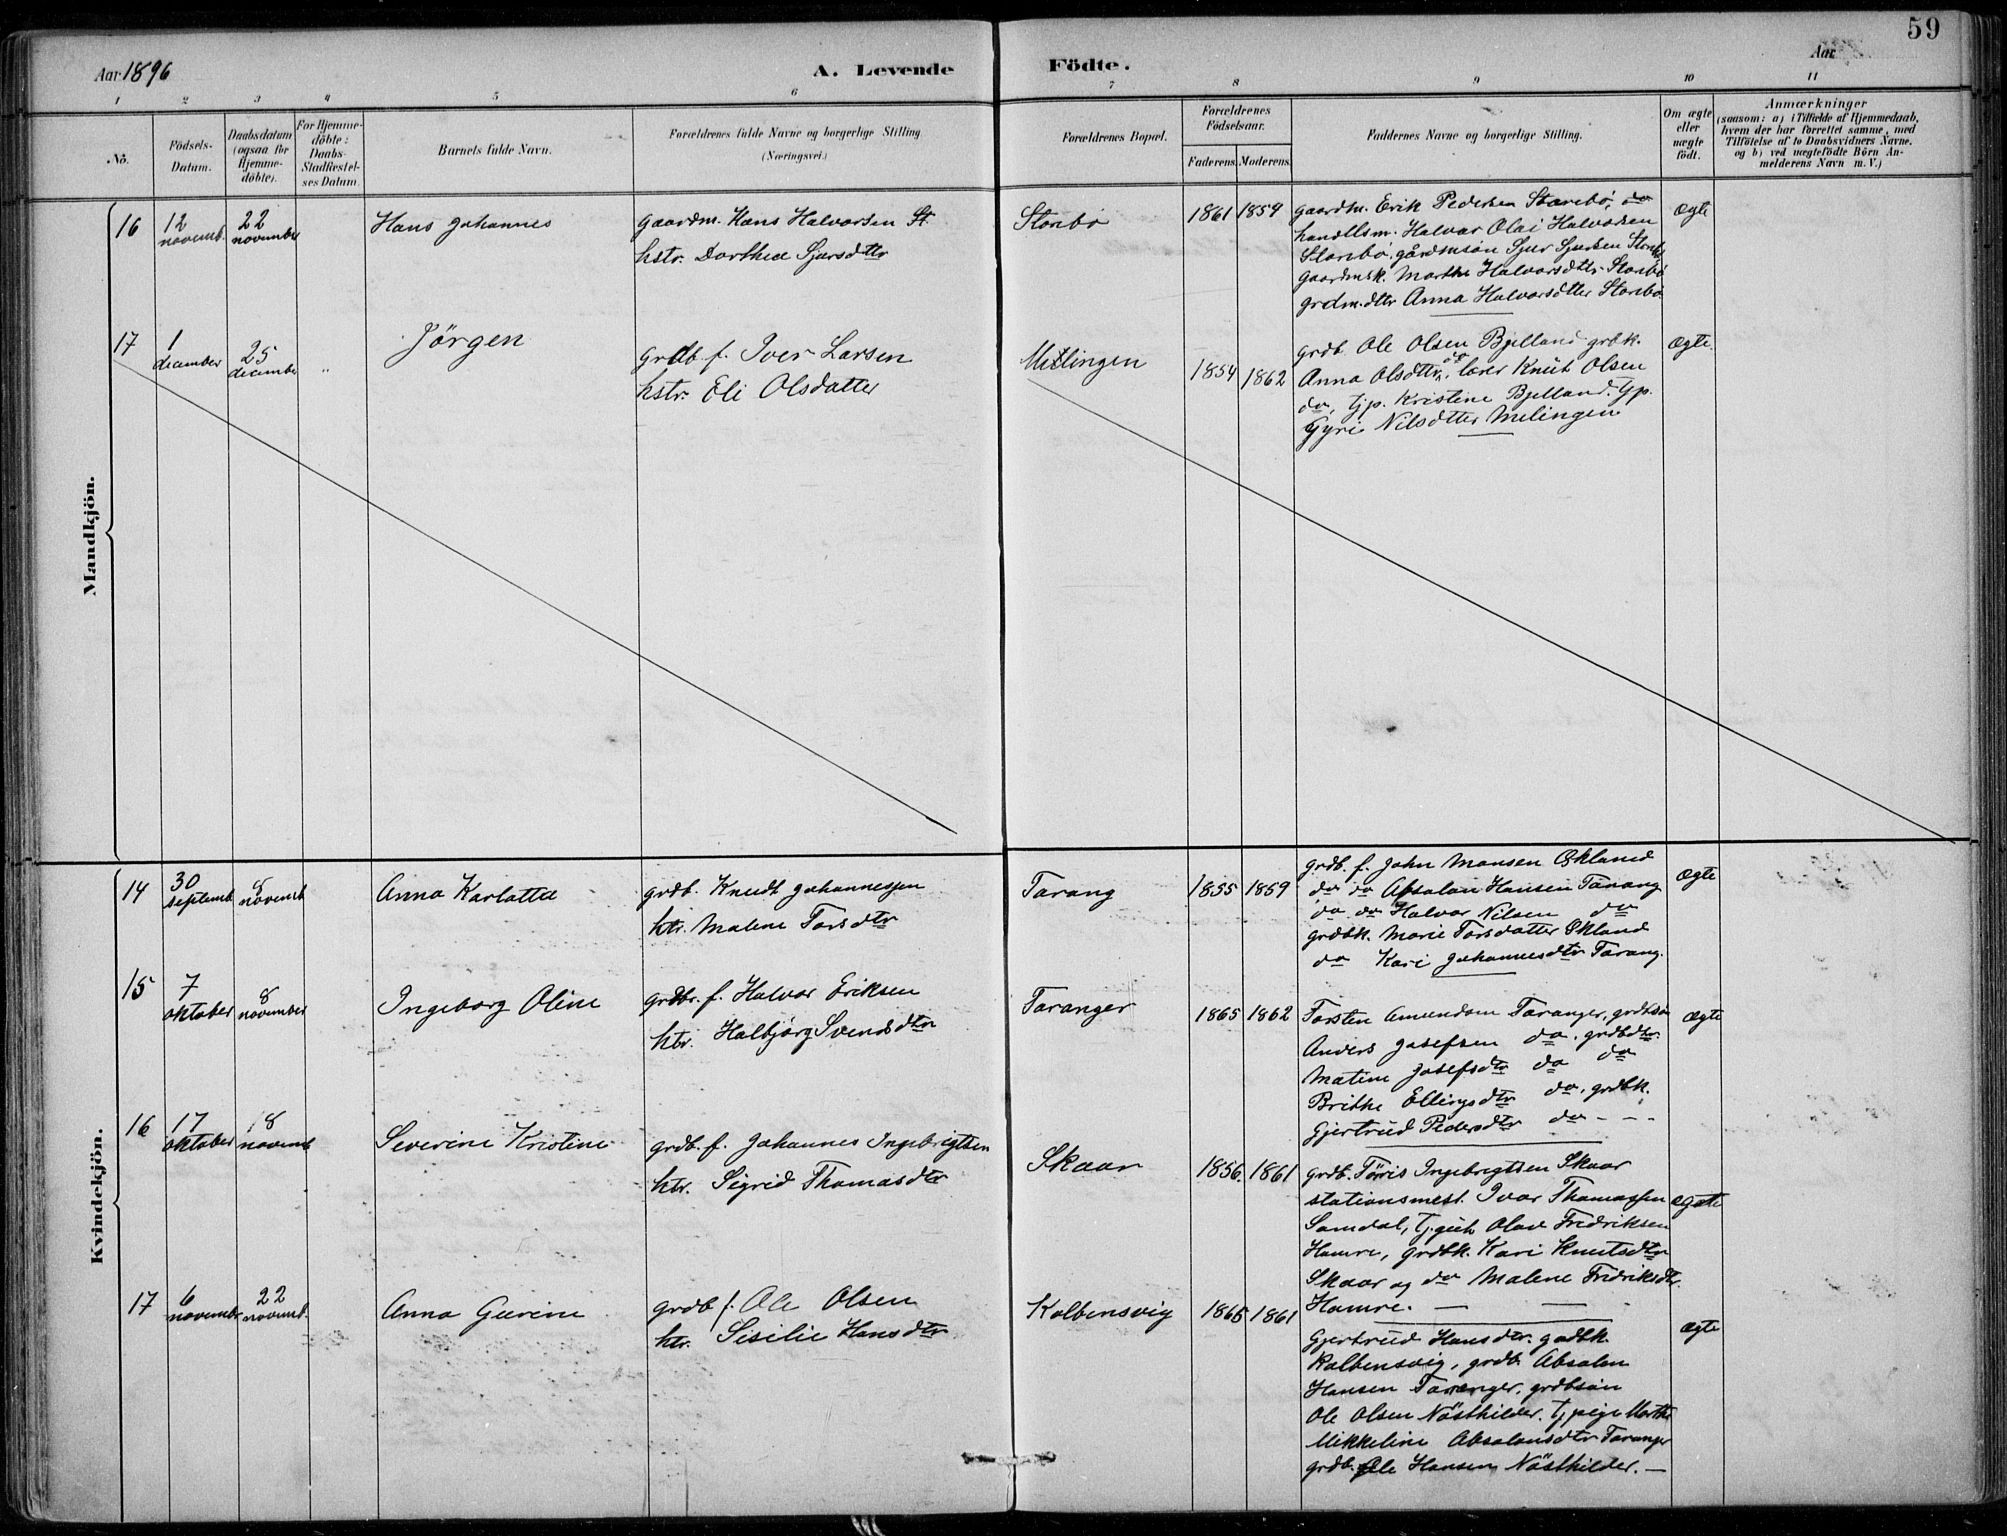 59
Aar 1896 A. Levende Födte. Aar
1 2 3 4 5 6 7 8 9 10 11
No.
Födsels-Datum.
Daabsdatum (ogsaa for Hjemme-döbte).
For Hjemme-döbte: Daabs-Stadfæstel-ses Datum.
Barnets fulde Navn.
Forældrenes fulde Navne og borgerlige Stilling.
(Næringsvei.)
Forældrenes Bopæl.
Forældrenes Födselsaar.
Faderens. Moderens.
Faddernes Navne og borgerlige Stilling.
Om ægte eller uægte født.
Anmærkninger
(saasom: a) i Tilfælde af Hjemmedaab,
hvem der har forrettet samme, med
Tilföielse af to Daabsvidners Navne.
og b) ved uægtefödte Börn An-
melderens Navn m. V.)
Mandkjön.
16 12 novemb. 22 november Hans Johannes
gaardm. Hans Halvorsen St
hstr. Dorthea Sjursdtr
Storebö 1861 1859
gaardm. Erik Pedersen Storebö, do
handllsm. Halvor Olai Halvorsen
Storebö, gårdmsön Sjur Sjursen Storebö
gaardmsk. Marthe Halvorsdtr Storebö
grdm.dtr Anna Halvorsdtter Storebö
ægte
17 1 december 25 december " Jörgen
grdb. f. Iver Larsen
hstr. Eli Olsdatter
Mellingen 1854 1862
grdb. Ole Olsen Bjelland grbk.
Anna Olsdtr, do lærer Knut Olsen
do, tjp. Kristine Bjelland. tjp.
Gyri Nilsdtter Melingen
ægte.
Kvindekjön.
14 30 septemb. 8 novemb Anna Karlotta
grdb. Knudt Johannessen
htr. Malene Torsdtr
Tarang 1855 1859
grdb. f. John Monsen Økland
do do Absalon Hansen Tarang
do do Halvor Nilsen do
grdbk. Marie Torsdatter Økland
do Kari Johannesdtr Tarang.
ægte
15 7 oktober 8 november Ingeborg Oline
grdbr. f. Halvor Eriksen
htr. Halbjörg Svendsdtr
Taranger 1865 1862
Torsten Amundsen Taranger, grdbsön
Anders Josefsen do, grdbdtr.
Matine Josefsdtr do do
Brithe Ellingsdtr do, grdbk.
Gjertrud Pedersdtr do - - -
ægte
16 17 oktober 18 novemb Severine Kristine
grdb. f. Johannes Ingebrigtsen
htr. Sigrid Thomasdtr
Skaar 1856. 1861
grdb. Töris Ingebrigtsen Skaar
stationsmest. Ivar Thomassen
Samdal, tj.gut Olav Fridriksen
Hamre, grdbk. Kari Knutsdtr
Skaar og do Malene Fridriksdtr.
Hamre. — —
ægte
17 6 novembr 22 novemb. Anna Gurine
grdb f. Ole Olsen
htr. Sisilie Hansdtr
Kolbensvig 1865 1861
Gjertrud Hansdtr. grdbk.
Kolbensvig, grdb. Absalon
Hansen Taranger, grdbsön
Ole Olsen Nösthilder. tj.pige Marthe
Mikkeline Absalonsdtr Taranger
grdb. Ole Hansen Nösthilder. —
ægte